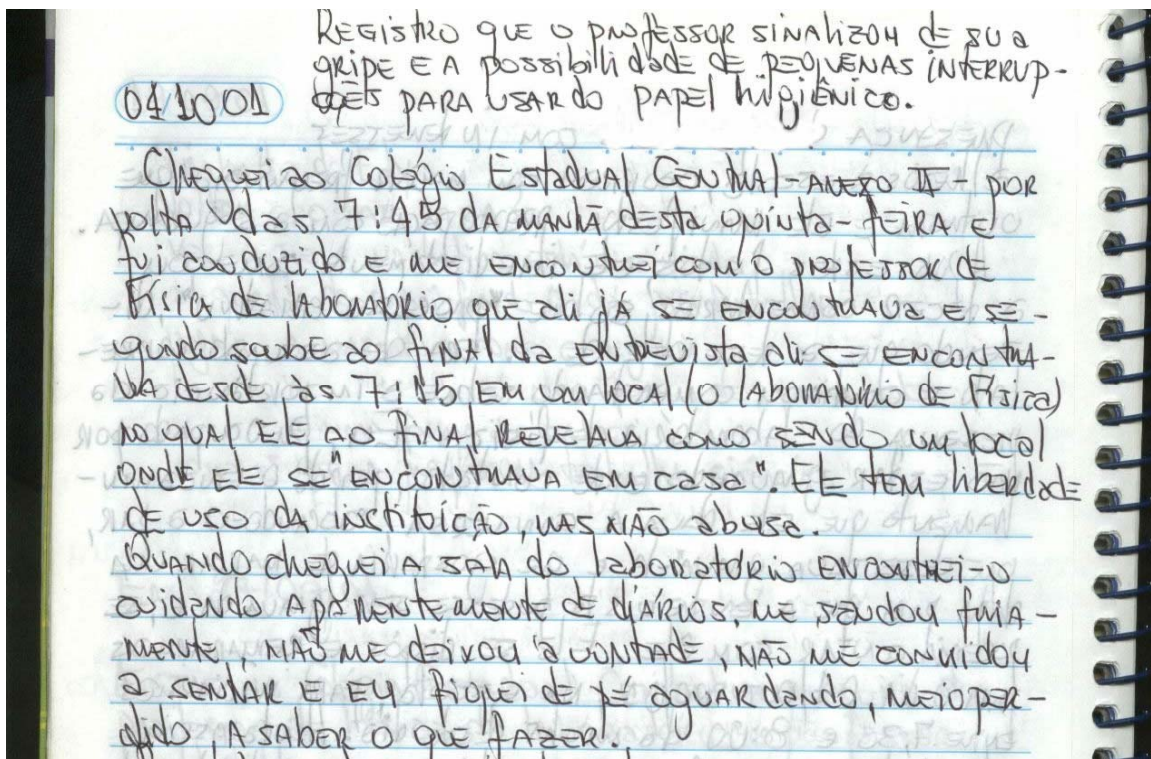 REGISTRO QUE O PROFESSOR SINALIZOU DE SUA
GRIPE E A POSSIBILIDADE DE PEQUENAS INTERRUP-
ÇÕES PARA USAR DO PAPEL HIGIÊNICO.
041001
Cheguei ao Colégio Estadual Central-ANEXO II - POR
volta das 7:45 DA MANHÃ desta quinta-feira E
fui conduzido E ME ENCONTREI COM O PROFESSOR DE
Física de laboratório que ali já SE ENCONTRAVA E SE-
gundo soube ao final da ENTREVISTA ali SE ENCONTRA-
VA DESDE às 7:15 EM UM local (O LABORATÓRIO DE Física)
NO QUAL ELE AO FINAL REVELAVA COMO SENDO UM local
ONDE ELE SE "ENCONTRAVA EM CASA". ELE TEM liberdade
DE USO DA instituição, MAS NÃO abusa.
QUANDO cheguei A SALA do laboratório ENCONTREI-O
cuidando APARENTEMENTE DE diÁRIOS, ME SAUDOU FRIA-
MENTE, NÃO ME DEIXOU à VONTADE, NÃO ME CONVIDOU
A SENTAR E EU fiquei de pé aguardando, MEIO PER-
dido, A SABER O QUE FAZER.